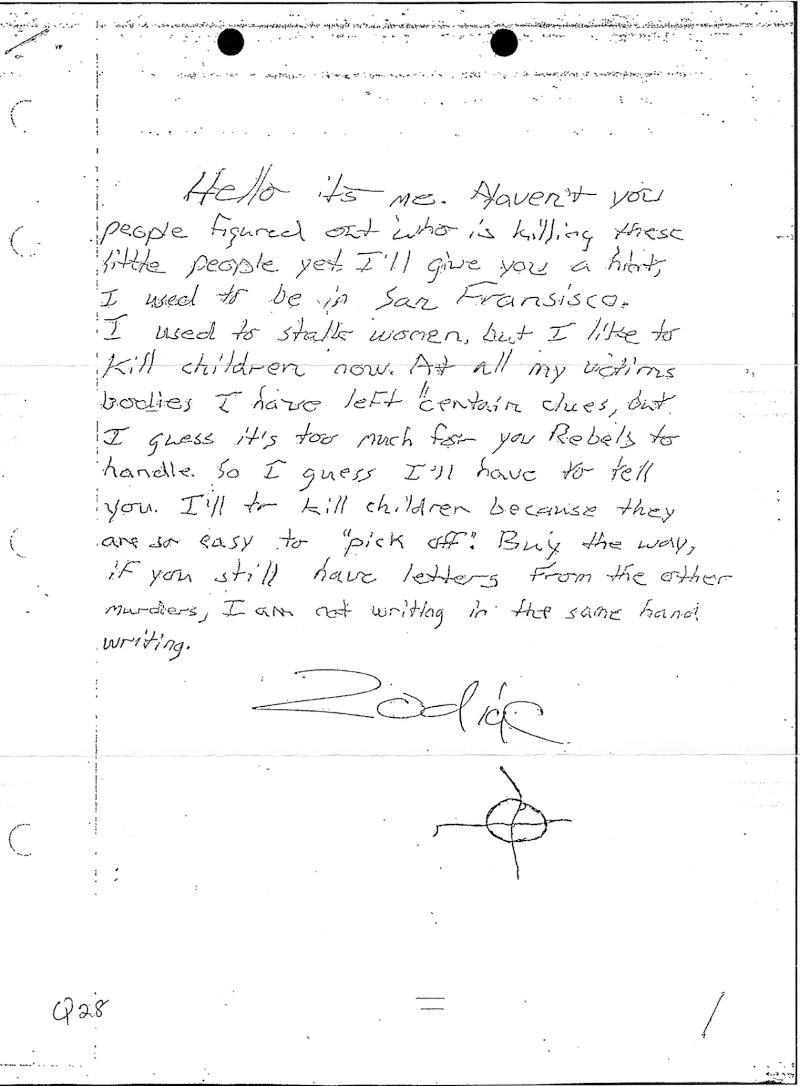 Hello its me. Haven't you
people figured out who is killing these
little people yet. I'll give you a hint,
I used to be in San Fransisco.
I used to stalk women, but I like to
kill children now. At all my victims
bodies I have left "certain clues, but
I guess it's too much for you Rebels to
handle. So I guess I'll have to tell
you. I'll to kill children because they
are so easy to "pick off". Buy the way,
if you still have letters from the other
murders, I am not writing in the same hand
writing.
Zodiac
Q28